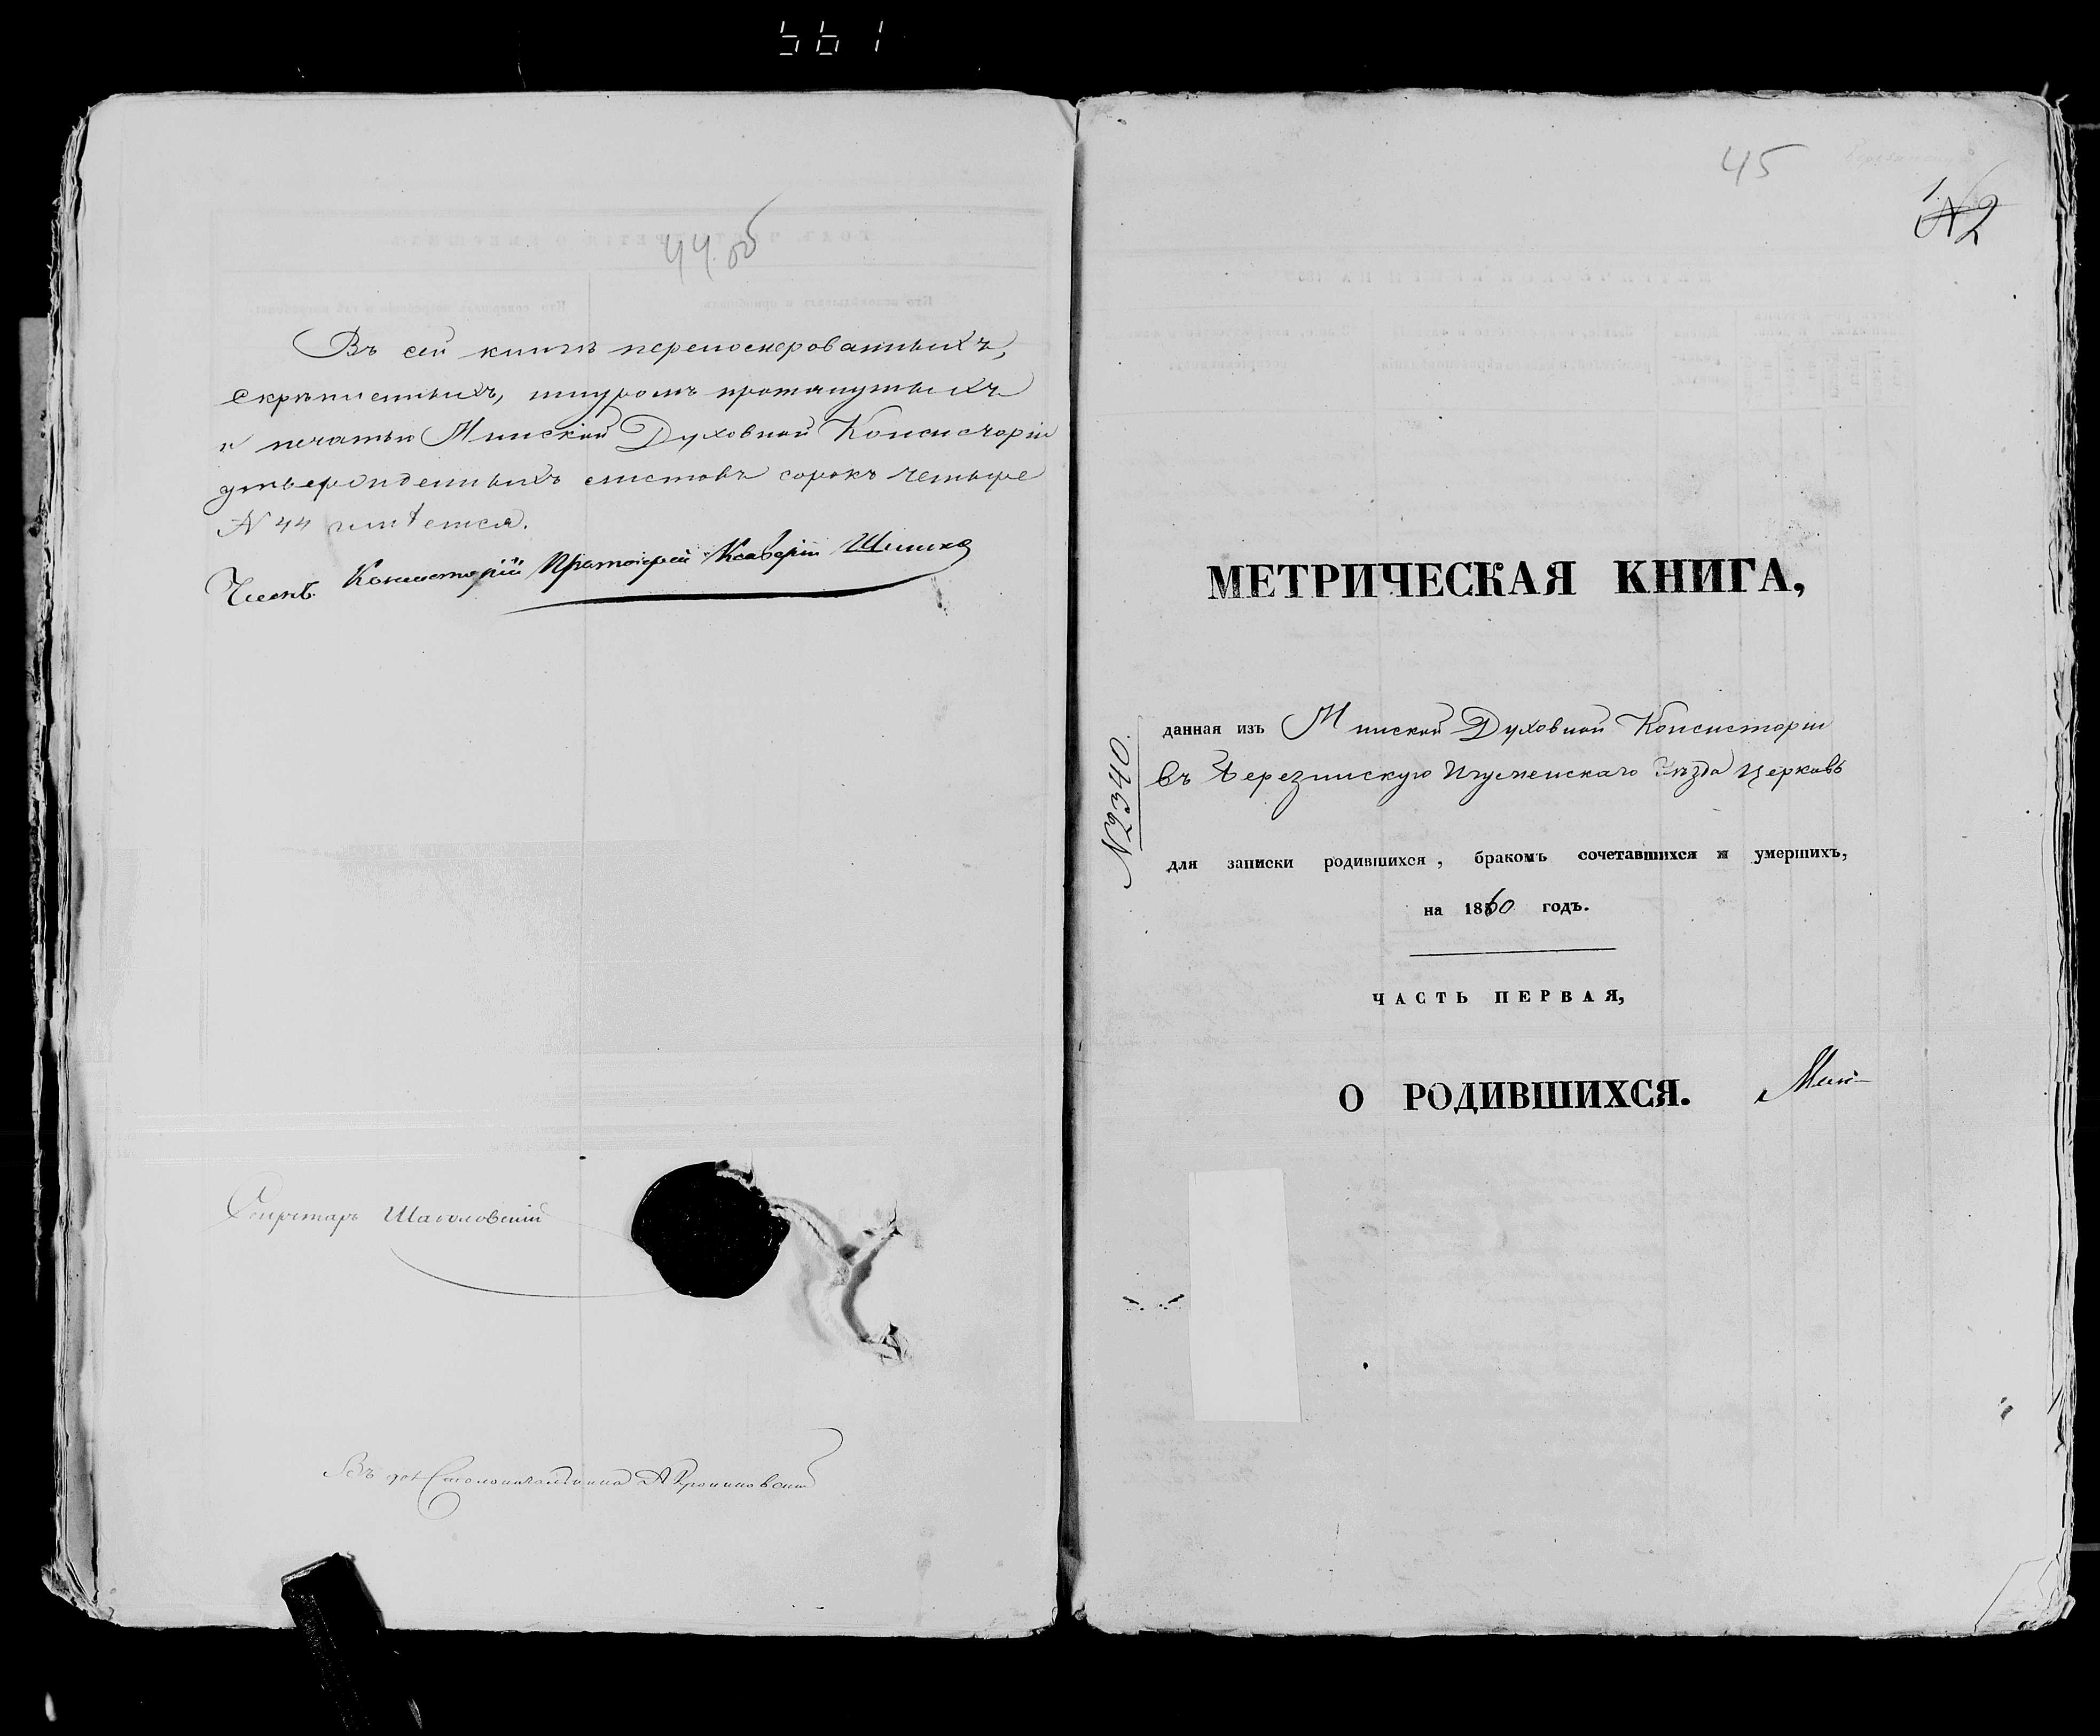 561
44 об
Въ сей книгѣ перенумерованныхъ,
скрѣпленныхъ, шнуромъ протянутыхъ
и печатью Минской Духовной Консисторіи
утвержденныхъ листовъ сорокъ четыре
N 44 имѣется.
Членъ Консисторіи Протоіерей Ксаверій
Секретарь
Въ дол. Столоначальника А
45
1
N2
МЕТРИЧЕСКАЯ КНИГА,
N2340.
данная изъ Минской Духовной Консисторіи
въ Березинскую Игуменскаго уѣзда церковь
для записки родившихся, бракомъ сочетавшихся и умершихъ,
на 1860 годъ.
ЧАСТЬ ПЕРВАЯ,
О РОДИВШИХСЯ.